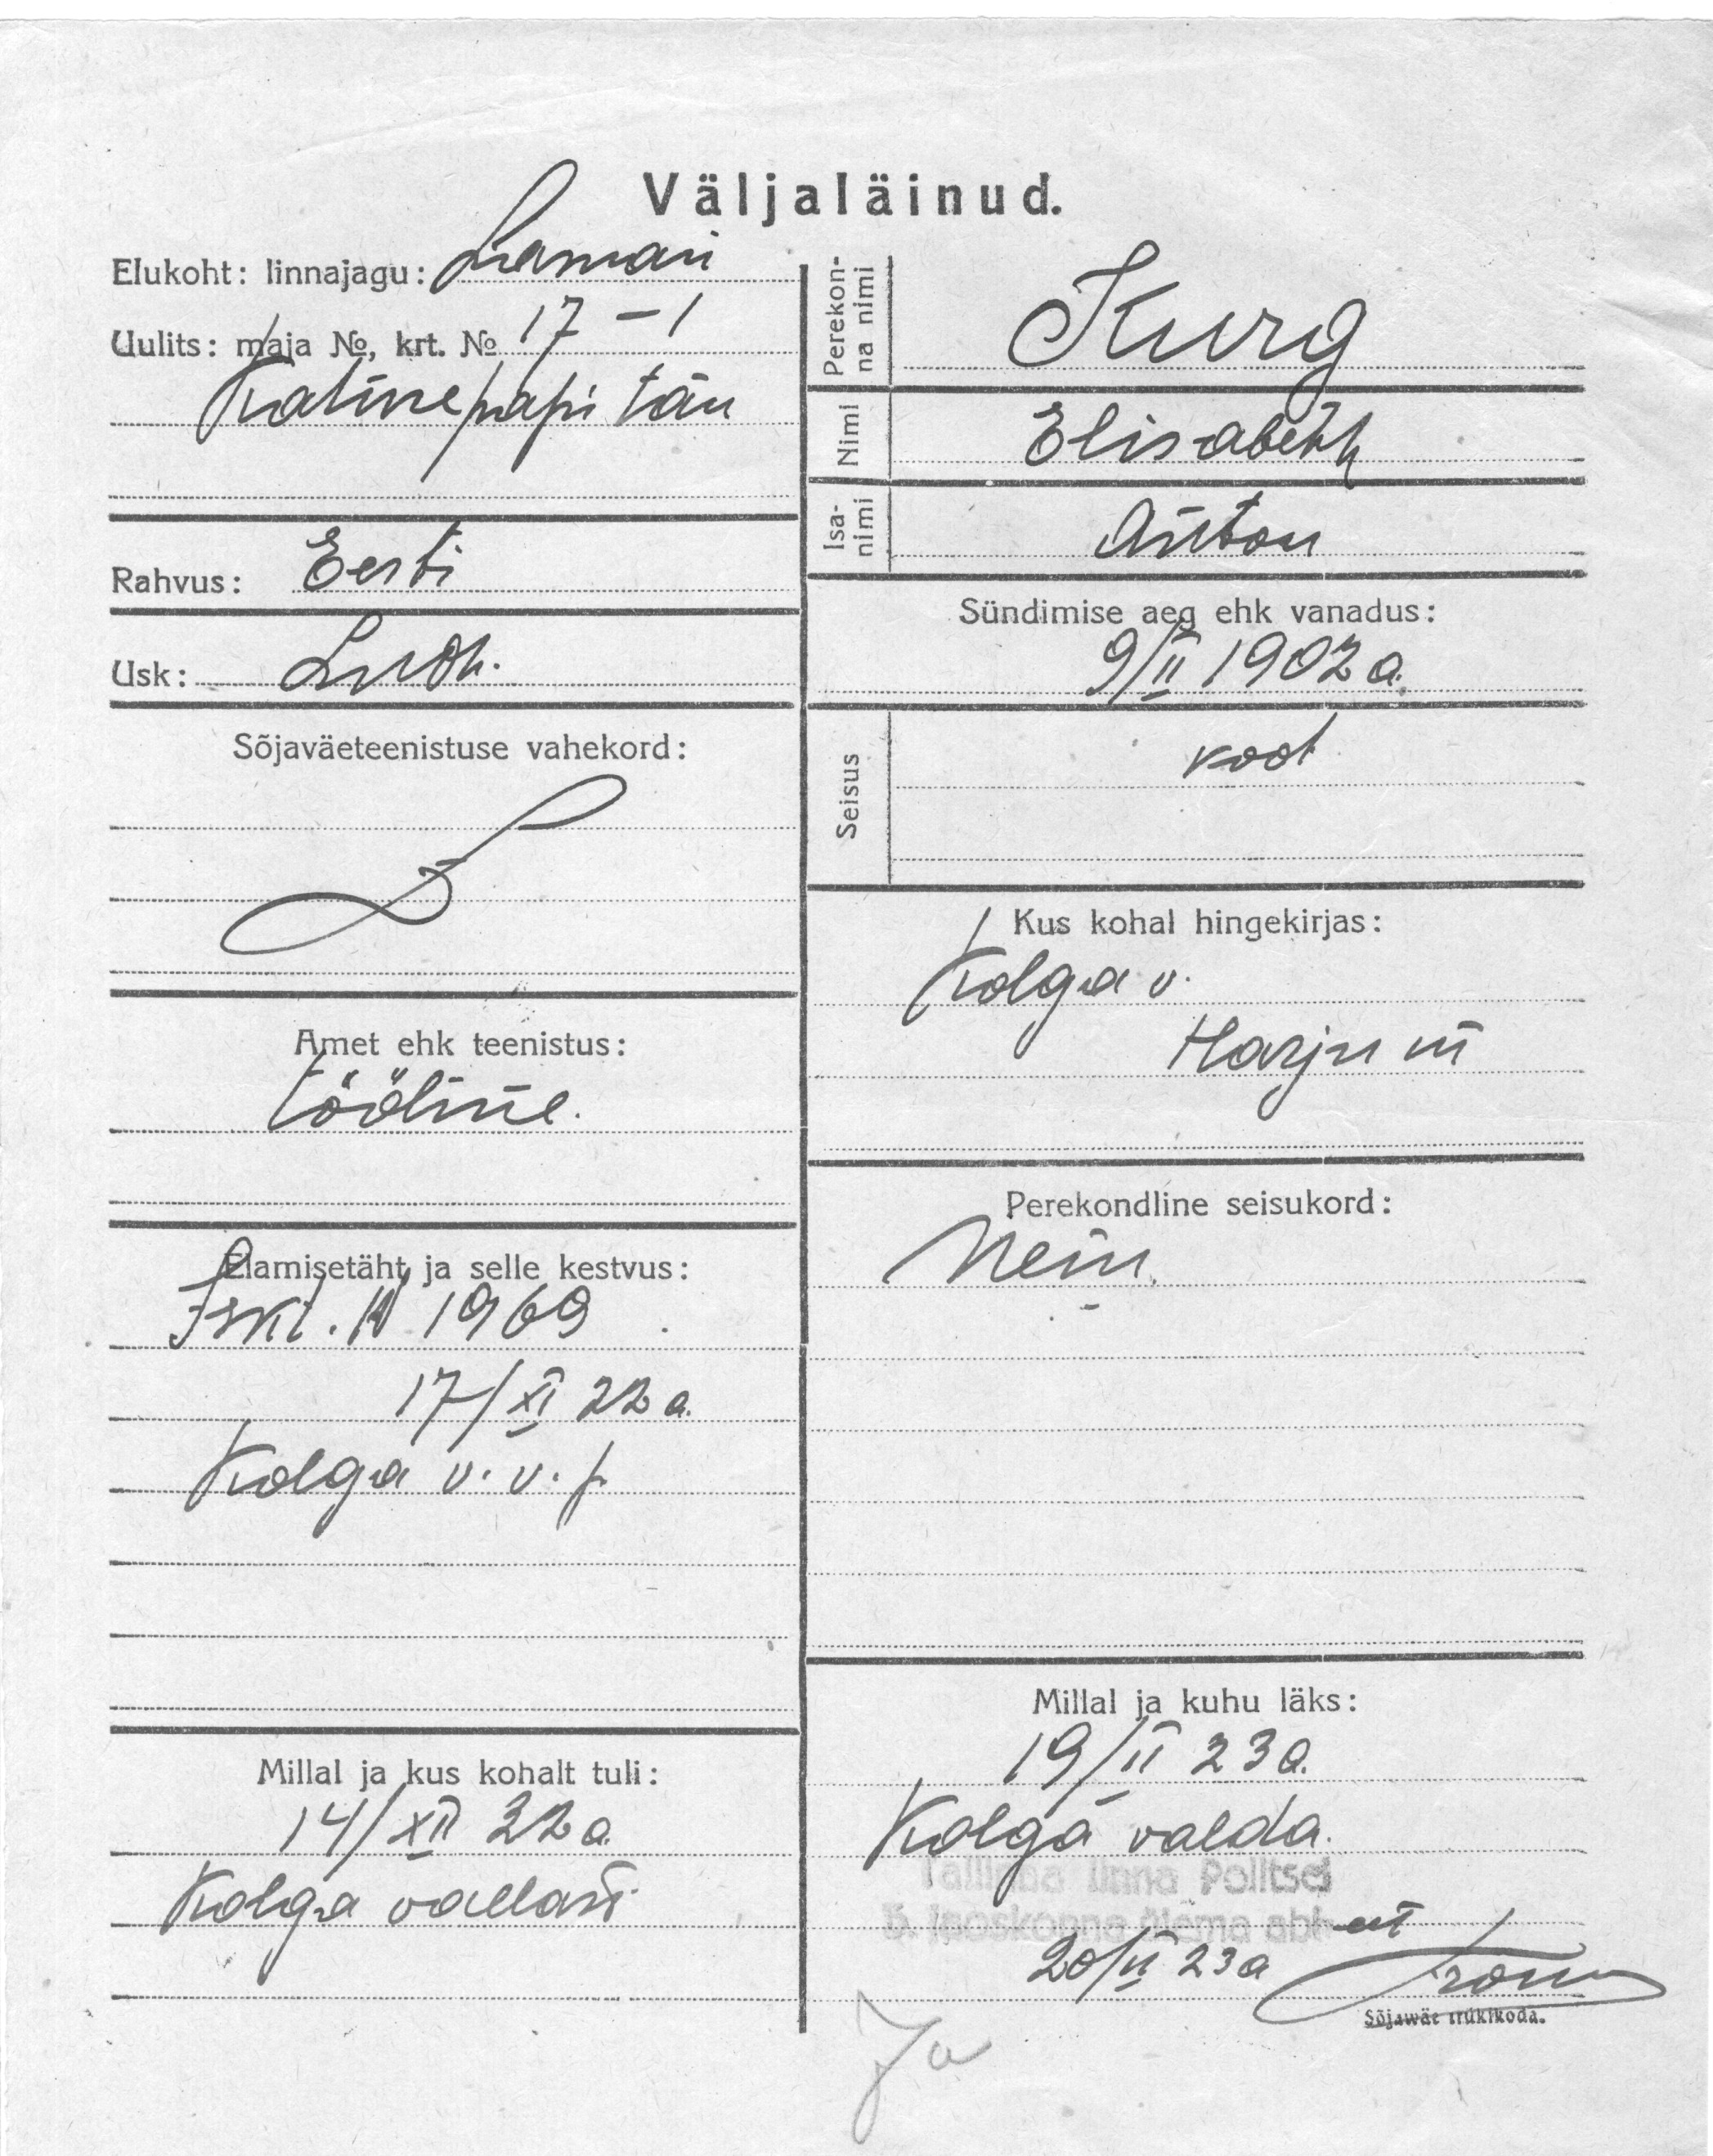 Väljaläinud.
Elukoht: linnajagu:
Uulits: maja №, krt. № 17 – 1
Rahvus: Eesti
Usk: Luth.
Sõjaväeteenistuse vahekord:
Amet ehk teenistus:
tööline.
Elamisetäht ja selle kestvus:
Iskt. № 1969
17/XI 22 a.
Kolga v. v. p.
Millal ja kus kohalt tuli:
14/XII 22 a
Kolga vallast
Perekon-
na nimi
Kurg
Nimi
Elisabeth
Isa-
nimi
Anton
Sündimise aeg ehk vanadus:
9/II 1902 a.
Seisus
kod.
Kus kohal hingekirjas:
Kolga v.
Harju m
Perekondline seisukord:
Nein.
Millal ja kuhu läks:
19/II 23 a.
Kolga valda.
Tallinna linna Politsei
5. jaoskonna ülema abi
20/II 23 a
Sõjawäe trükikoda.
Ja